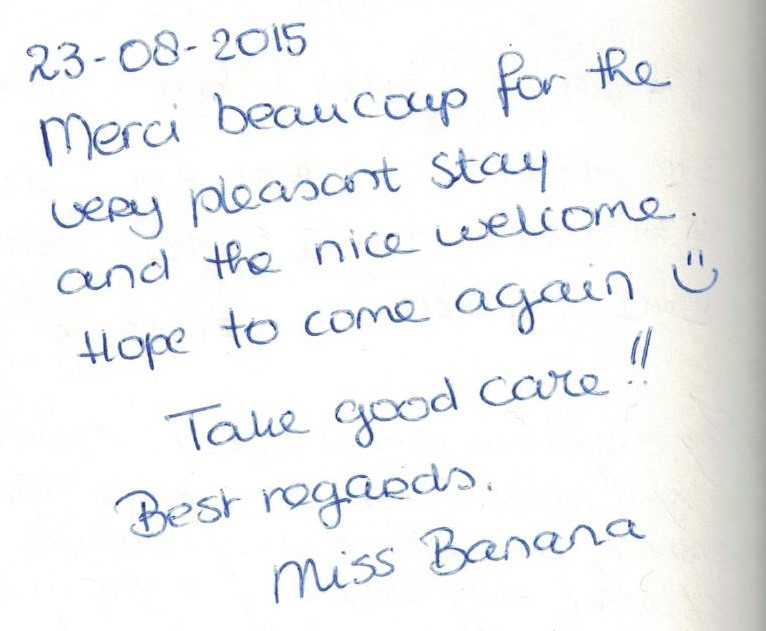 23-08-2015
Merci beaucoup for the
very pleasant stay
and the nice welcome.
Hope to come again ü
Take good care!!
Best regards.
Miss Banana